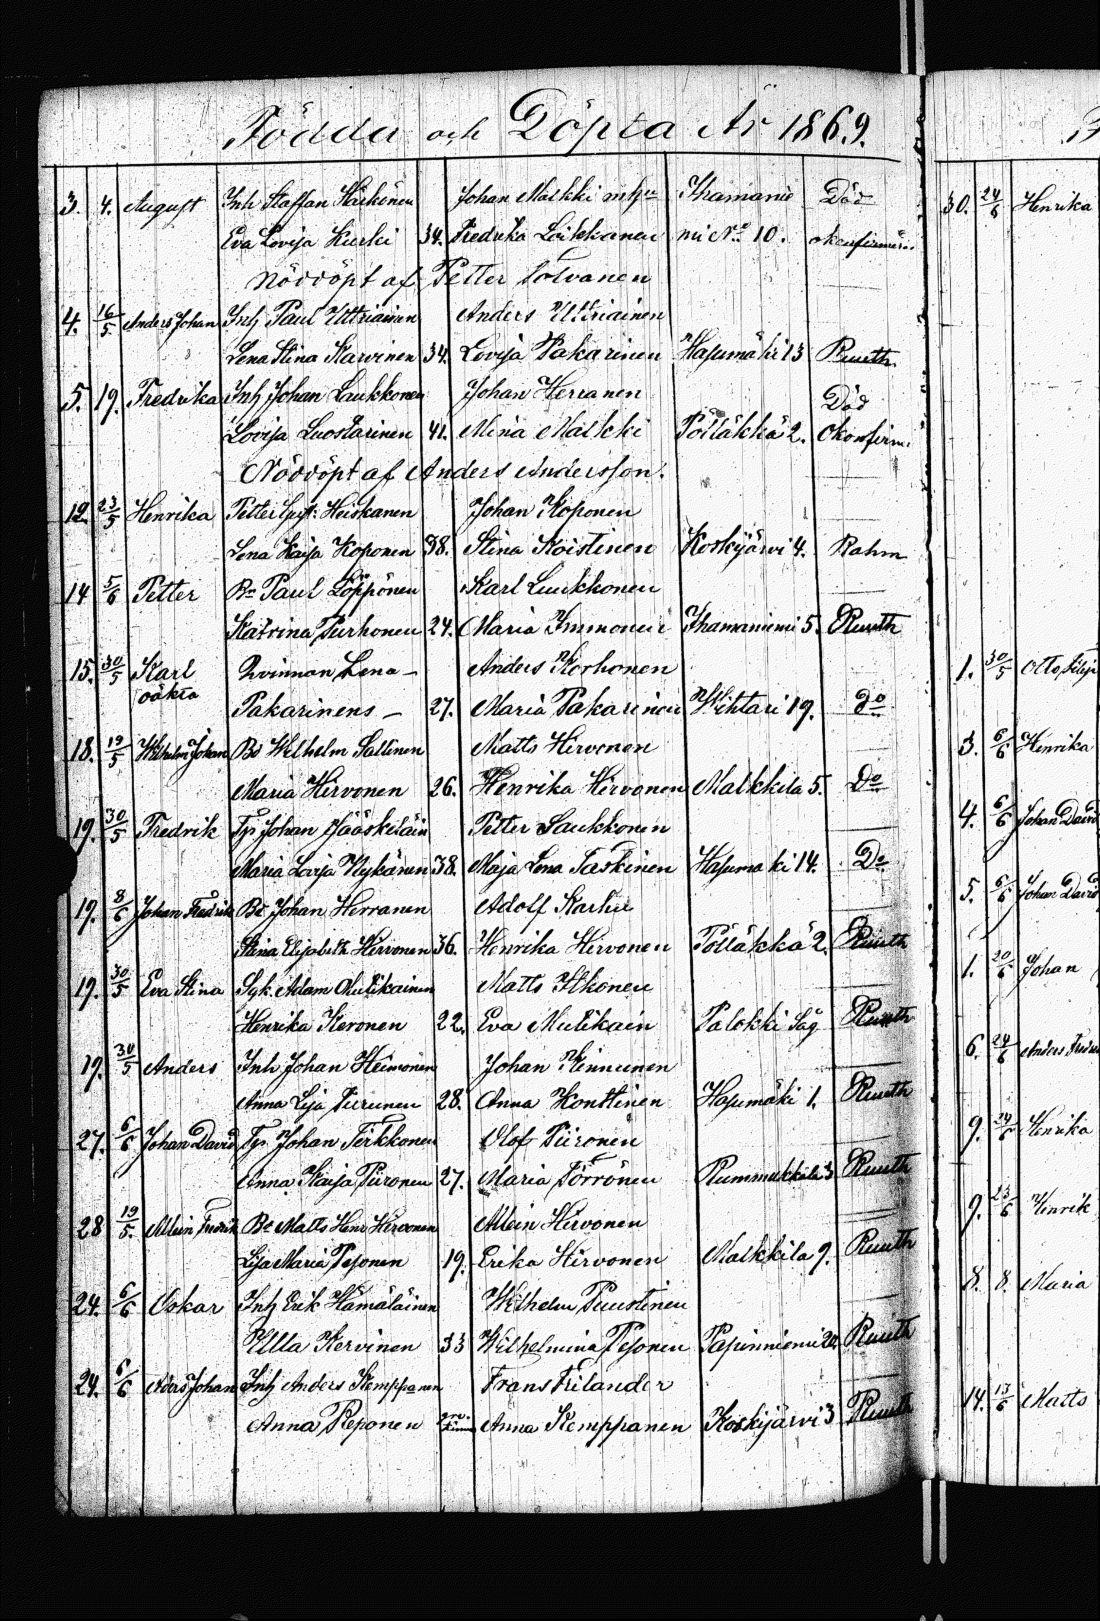 Födda och Döpta År 1869.
3. 4. August Inh Staffan Härkönen Johan Malkki Ihamanie Död
Eva Lovisa Kurki 34. Fredrika Loikkanen mi No 10. okonfirmer.
Nöddöpt af Petter Tolvanen
4. 16/5 Anders Johan Inh Paul Uttriainen Anders Uttriainen
Lena Stina Karvinen 34. Lovisa Pakarinen Hasumäki 13 Ruuth
5. 19. Fredrika Inh Johan Laukkonen Johan Herranen Död
Lovisa Luostarinen 41. Mina Malkki Pölläkkä 2. Okonfirm.
Nöddöpt af Anders Andersson.
12. 23/5 Henrika Petter Heiskanen Johan Koponen
Lena Kaisa Koponen 38. Stina Koistinen Koskijärvi 4. Rahm
14 5/6 Petter Bn Paul Löppönen Karl Luukkonen
Katrina Turhonen 24. Maria Immonen Ihamaniemi 5. Ruuth
15. 30/5 Karl Qvinnan Lena - Anders Korhonen
oäkta Pakarinens - 27. Maria Pakarinen Wihtari 19. Do
18. 19/5 Wilhelm Johan Bd Wilhelm Sallinen Matts Hirvonen
Maria Hirvonen 26. Henrika Hirvonen Malkkila 5. Do
19. 30/5 Fredrik Tp Johan Jääskeläin Petter Laukkonen
Maria Lovisa Nykänen 38. Maja Lena Taskinen Hasumaki 14. Do
19. 8/6 Johan Fredrik Bd Johan Herranen Adolf Karhu
Stina Elisabeth Hirvonen 36. Henrika Hirvonen Pölläkkä 2 Ruuth
19. 30/5 Eva Stina Syt. Adam Mulikainen Matts Itkonen
Henrika Keronen 22. Eva Mulikain Palokki Såg Ruuth
19. 30/5 Anders Inh Johan Heimonen Johan Kinnunen
Anna Lisa Piirunen 28. Anna Konttinen Hasumäki 1. Ruuth
27. 6/6 Johan David Tp. Johan Tirkkonen Olof Piironen
Anna Kaisa Piironen 27. Maria Törrönen Rummukkala 3 Ruuth
28 19/5. Albin Fredrik Bd Matts Henr Hirvonen Albin Hirvonen
Lisa Maria Pesonen 19. Erika Hirvonen Malkkila 9. Ruuth
24. 6/6 Oskar Inh Erik Hämäläinen Wilhelm Puustinen
Ulla Kervinen 33 Wilhelmina Pesonen Papinniemi 20. Ruuth
24. 6/6 Adas Johan Inh Anders Kemppanen Frans Frilander
Anna Reponen Anna Kemppanen Koskijärvi 3 Ruuth
30. 24/6 Henrika
1. 30/5 Otto Filip
3. 6/6 Henrika
4. 6/6 Johan David
5. 6/6 Johan David
1. 20/6 Johan
6. 24/6 Anders
9. 24/6 Henrika
9. 23/6 Henrik
8. 8. Maria
14. 13/6 Matts